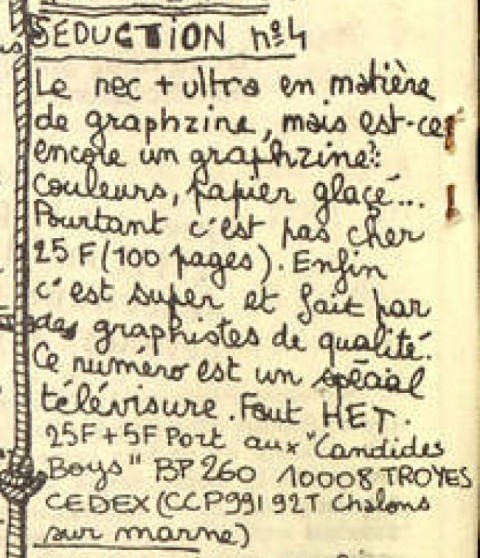 SEDUCTION nº4
Le nec + ultra en matière
de graphzine, mais est-ce
encore un graphzine?:
Couleurs, papier glaçé...
Pourtant c'est pas cher
25 F (100 pages). Enfin
c'est super et fait par
des graphistes de qualité.
Ce numéro est un spécial
télévisure. Faut HET.
25F + 5F Port aux "Candides
Boys" BP 260 10008 TROYES
CEDEX (CCP 991 92T Chalons
sur marne)